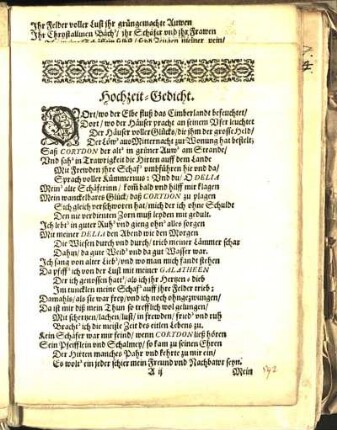 Ihr Felder voller Lust ihr grüngemachte Auwen
Ihr Chrystallinen Bäch'/ ihr Schöfer und ihr Frawen
Hochzeit-Gedicht.
DOrt/ wo der Elbe fluß das Cimberlande befeuchtet/
Dort/ wo der Häuser pracht an seinem Ufer leuchtet
Der Häuser voller Glücks/ die ihm der grosse Held/
Der Löw' aus Mitternacht zur Wonung hat bestelt;
Saß CORYDON der alt' in grüner Auw' am Strande/
Und sah' in Trawrigkeit die Hirten auff dem Lande
Mit Frewden ihre Schaf' umbführen hie und da/
Sprach voller Kümmernus: Und du/ O DELIA
Mein' alte Schäferinn/ kom̃ bald und hilff mit klagen
Mein wanckelbares Glück/ daß CORYDON zu plagen
Sich gleich verschworen hat/ mich der ich ohne Schulde
Den nie verdienten Zorn muß leyden mit gedult.
Ich lebt' in guter Ruh' und gieng ohn' alles sorgen
Mit meiner DELIA den Abend wie den Morgen
Die Wiesen durch und durch/ trieb meiner Lämmer schar
Dahin/ da gute Weid' und da gut Wasser war.
Ich sang von alter Lieb'/ und wo man mich fandt stehen
Da pfeff' ich von der Lust mit meiner GALATHEEN
Der ich genossen hatt'/ als ich ihr Hertzen-dieb
Im tuncklen meine Schaf' auff ihre Felder trieb;
Damahls/ als sie war frey/ und ich noch ohngezwungen/
Da ist mit diß mein Thun so trefflich wol gelungen/
Mit schertzen/ lachen/ lust/ in frewden/ fried' und ruh
Bracht' ich die meiste Zeit des eitlen Lebens zu.
Kein Schäfer war mir feind/ wenn CORYDON ließ hören
Sein Pfeifflein und Schalmey/ so kam zu seinen Ehren
Der Hirten manches Pahr und kehrte zu mir ein/
Es wolt' ein jeder schier mein Freund und Nachbawr seyn.
A ij Mein